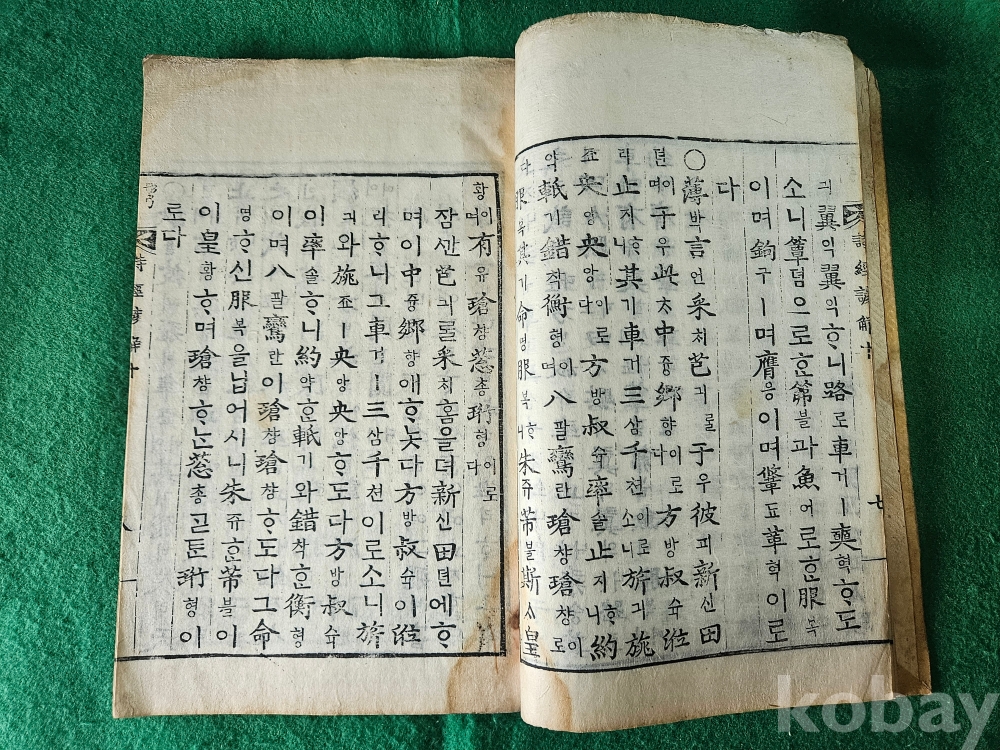 詩經諺解 十 七
긔翼익翼익ᄒᆞ니路로車거ㅣ奭혁ᄒᆞ도
소니簟뎜으로ᄒᆞᆫ茀블과魚어로ᄒᆞᆫ服복
이며鉤구ㅣ며膺응이며鞗됴革혁이로
다
○薄박言언采ᄎᆡ芑긔ᄅᆞᆯ于우彼피新신田
뎐이며于우此ᄎᆞ中듕鄕향이로다方방叔슉涖
리止지ᄒᆞ니其기車거三삼千쳔이로소니旂긔旐
죠央앙央앙이로다方방叔슉率솔止지ᄒᆞ니約
약軝기錯착衡형이며八팔鸞란瑲챵瑲챵이로
다服복其기命명服복ᄒᆞ니朱쥬芾블斯ᄉᆞ皇
황이며有유瑲챵葱총珩형이로다
잠ᄭᅡᆫ芑긔ᄅᆞᆯ采ᄎᆡ홈을뎌新신田뎐에ᄒᆞ
며이中듕鄕향애ᄒᆞ놋다方방叔슉이涖
리ᄒᆞ니그車거ㅣ三삼千쳔이로소니旂
긔와旐죠ㅣ央앙央앙ᄒᆞ도다方방叔슉
이率솔ᄒᆞ니約약ᄒᆞᆫ軝기와錯착ᄒᆞᆫ衡형
이며八팔鸞란이瑲챵瑲챵ᄒᆞ도다그命
명ᄒᆞ신服복을닙어시니朱쥬ᄒᆞᆫ芾블이
이皇황ᄒᆞ며瑲챵ᄒᆞᄂᆞᆫ葱총ᄀᆞᆮᄐᆞᆫ珩형이
로다
詩經諺解 十 八
kobay